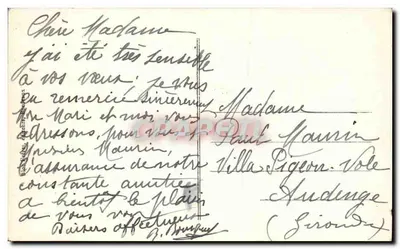 Chère Madame
j'ai été très sensible
à vos vœux; je vous
en remercie sincèrement
Mon Mari et moi vous
adressons, pour vous
Monsieur Maurin,
l'assurance de notre
constante amitié
a bientot le plaisir
de vous voir
Baisers affectueux
Madame
Paul Maurin
Villa Pigeon-Vole
Audenge
(Gironde)